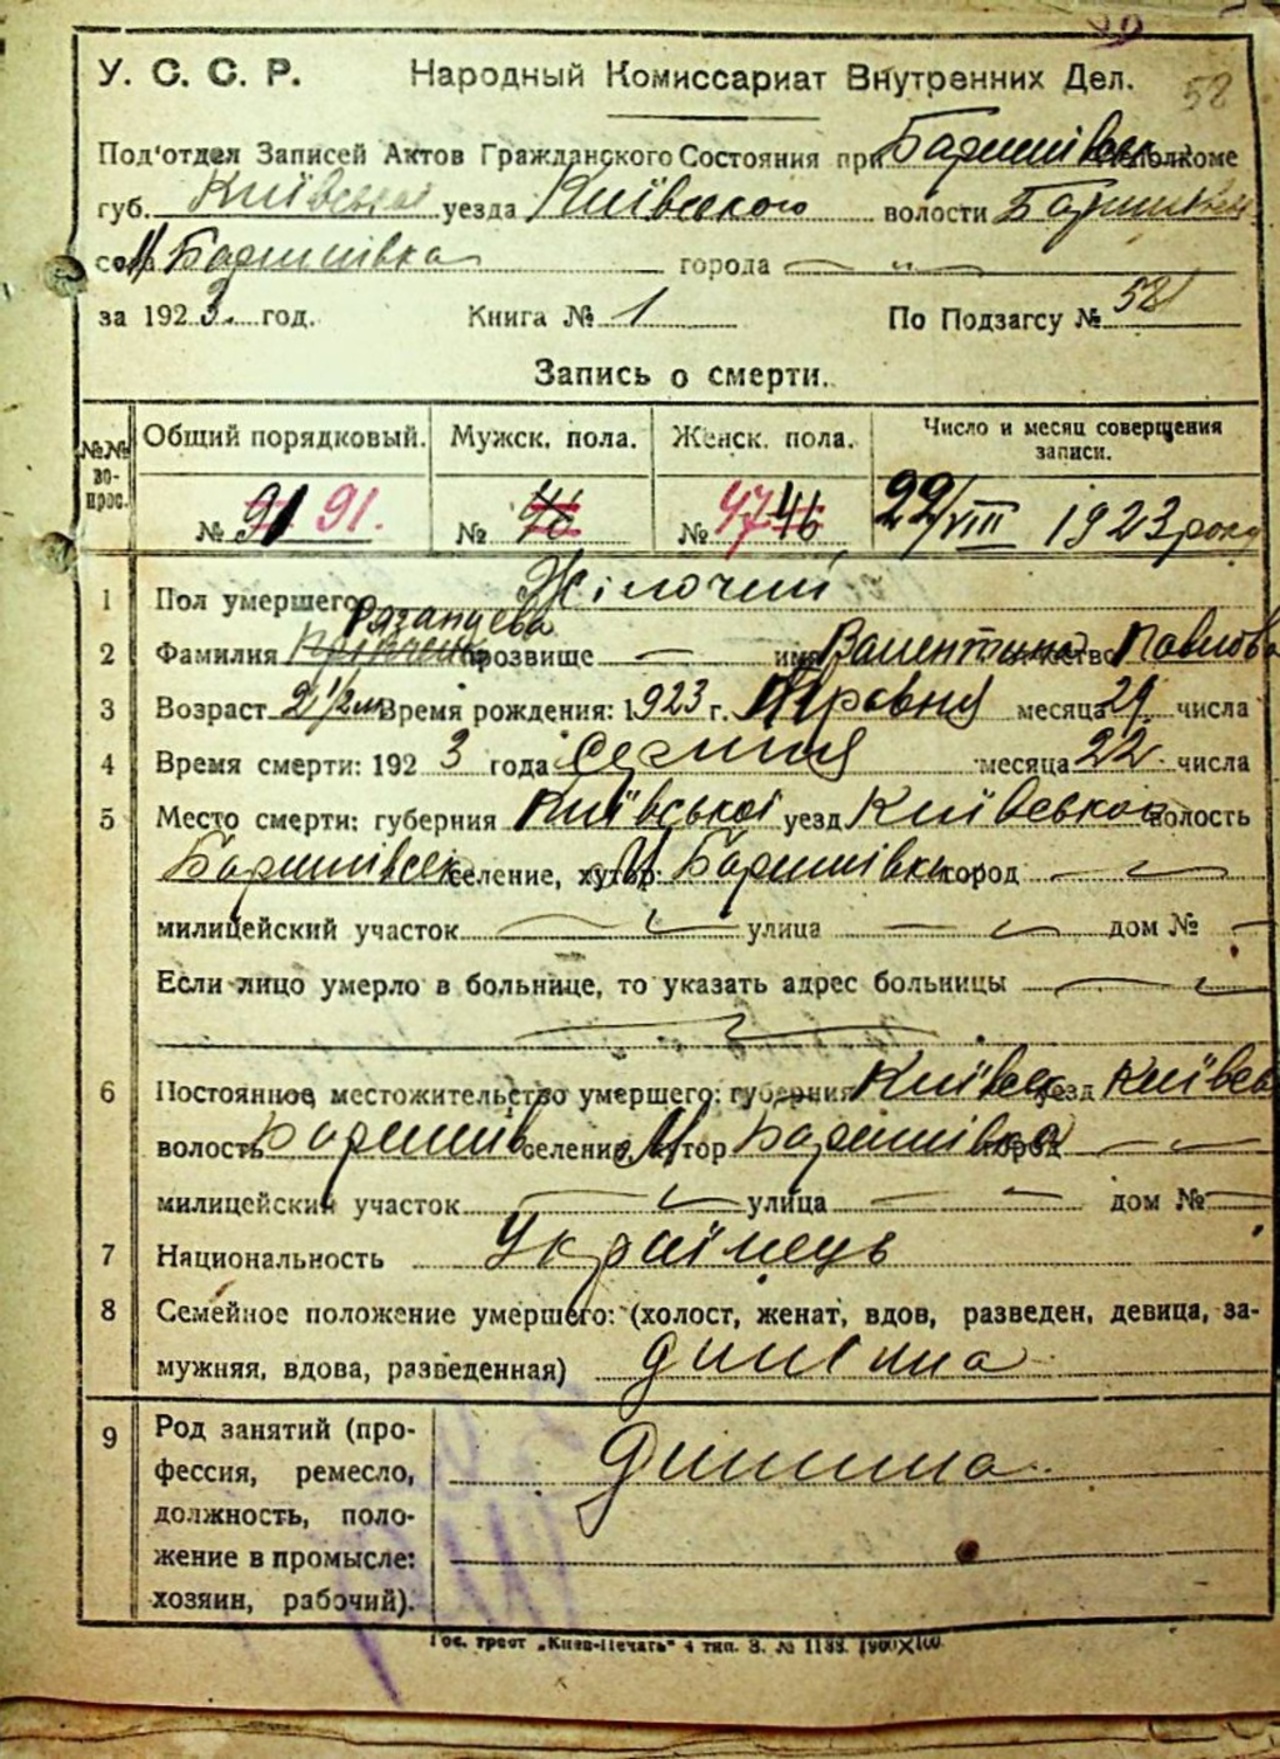 52
У. С. С. Р. Народный Комиссариат Внутренних Дел.
Под'отдел Записей Актов Гражданского Состояния при Баришівськ исполкоме
губ. Київської уезда Київського волости Баришівськ
села М Баришівка города — " —
за 1923. год. Книга № 1 По Подзагсу № 52
Запись о смерти.
№№ вопрос. Общий порядковый. Мужск. пола. Женск. пола. Число и месяц совершения записи.
№ 91 91. № 46 № 47 46 22/VIII 1923 року
1 Пол умершего Жіночий
Рязанцева
2 Фамилия прозвище — имя Валентина отчество Павлова
3 Возраст 2 1/2 м Время рождения: 1923 г. месяца 29 числа
4 Время смерти: 1923 года Серпня месяца 22. числа
5 Место смерти: губерния Київської уезд Київської волость
Баришівськ селение, хутор: М Баришівки город —
милицейский участок — улица — дом № —
Если лицо умерло в больнице, то указать адрес больницы —
6 Постоянное местожительство умершего: губерния Київськ уезд Київськ
волость Баришів селение, хутор М Баришівка город —
милицейский участок — улица — дом № —
7 Национальность Українець
8 Семейное положение умершего: (холост, женат, вдов, разведен, девица, за-
мужняя, вдова, разведенная) дитина
9 Род занятий (про-
фессия, ремесло, дитина
должность, поло-
жение в промысле:
хозяин, рабочий).
Гос. трест „Киев-Печать" 4 тип. З. № 1188. 1900×100